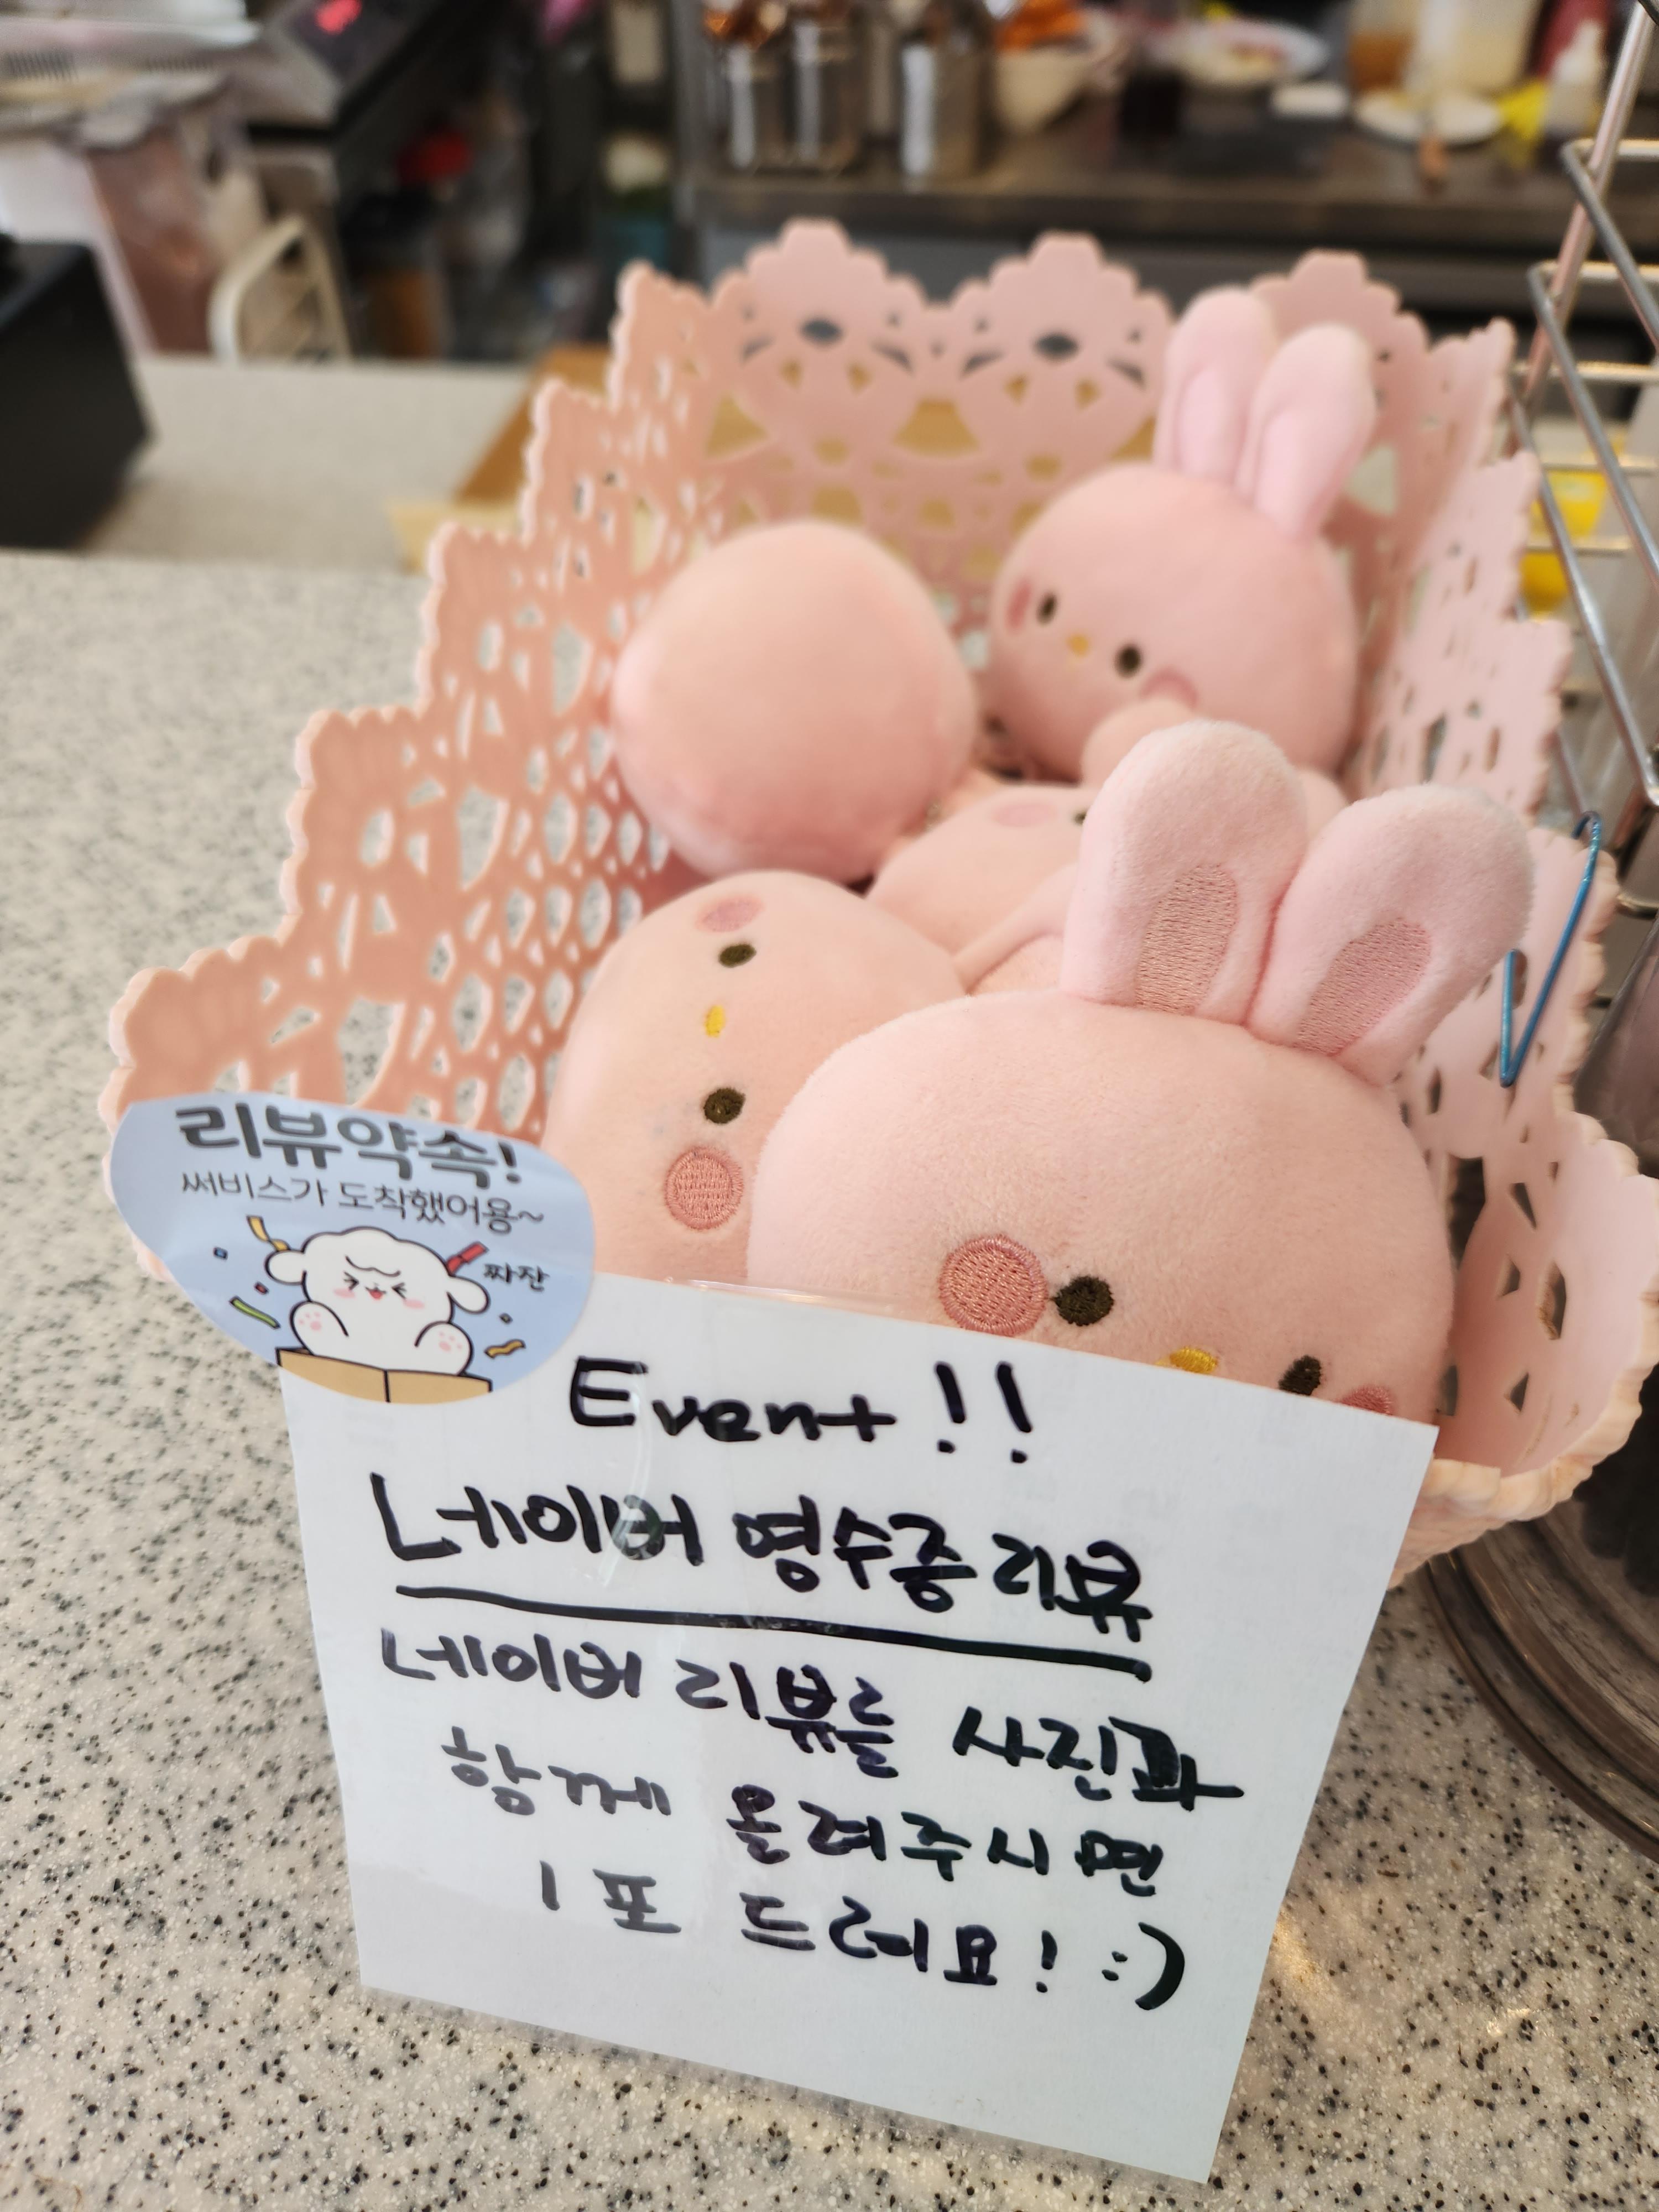 리뷰약속!
써비스가 도착했어용~
짜잔
Event!!
네이버 영수증 리뷰
네이버 리뷰를 사진과
함께 올려주시면
1포 드려요! :)